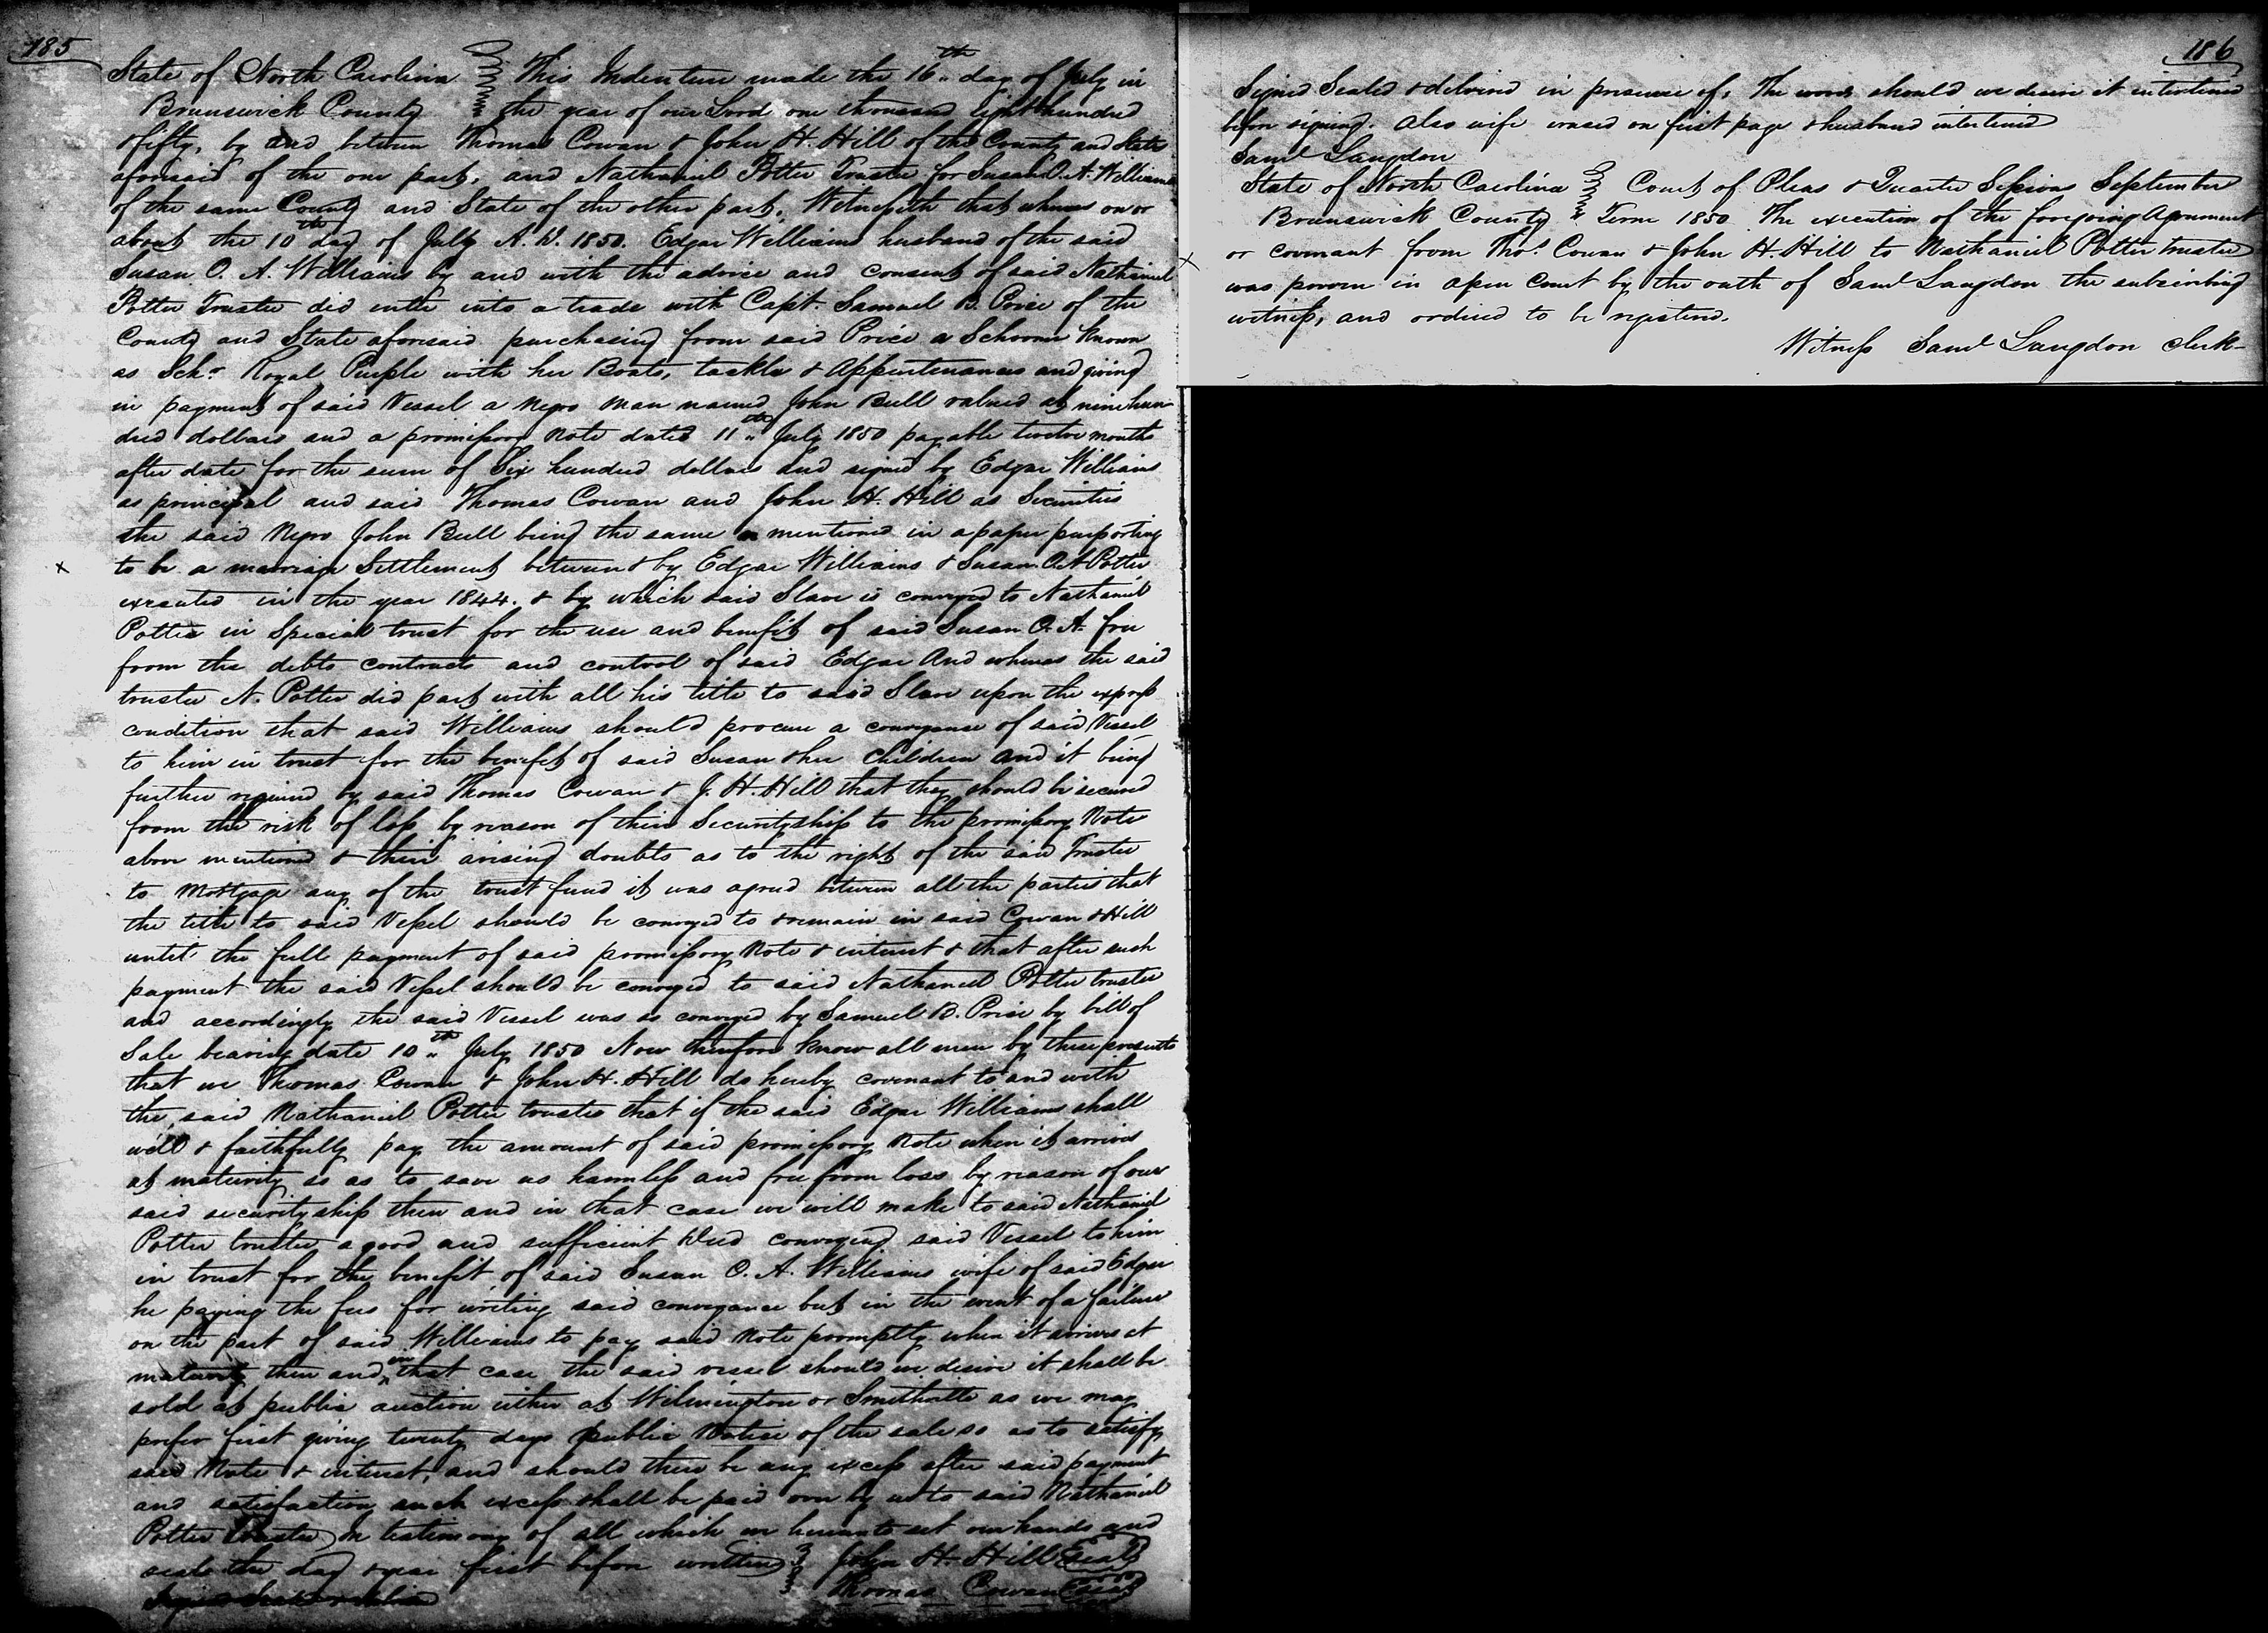 185
State of North Carolina This Indenture made the 16th day of July in
Brunswick County the year of our Lord one thousand eight hundred
& fifty, by and between Thomas Cowan & John H. Hill of the County and State
aforesaid of the one part, and Nathaniel Potter Trustee for Susan O. A. Williams
of the same County and State of the other part. Witnesseth that whereas on or
about the 10th day of July A. D. 1850. Edgar Williams husband of the said
Susan O. A. Williams by and with the advice and consent of said Nathaniel
Potter Trustee did enter into a trade with Capt. Samuel B. Price of the
County and State aforesaid purchasing from said Price a Schooner known
as Schr. Royal Purple with her Boats, tackle & Appurtenances and giving
in payment of said Vessel a Negro man named John Bull valued at nine hun-
dred dollars and a promissory Note dated 11th July 1850 payable twelve months
after date for the sum of Six hundred dollars and signed by Edgar Williams
as principal and said Thomas Cowan and John H. Hill as Securities
the said Negro John Bull being the same mentioned in a paper purporting
to be a marriage Settlement between & by Edgar Williams & Susan O. A Potter
executed in the year 1844. & by which said Slave is conveyed to Nathaniel
Potter in Special trust for the use and benefit of said Susan O. A. free
from the debts contracts and control of said Edgar And whereas the said
trustee N. Potter did part with all his title to said Slave upon the express
condition that said Williams should procure a conveyance of said Vessel
to him in trust for the benefit of said Susan & her Children and it being
further required by said Thomas Cowan & J. H. Hill that they should be secured
from the risk of loss by reason of their Securityship to the promissory Note
above mentioned & there arising doubts as to the right of the said Trustee
to Mortgage any of the trust fund it was agreed between all the parties that
the title to said Vessel should be conveyed to & remain in said Cowan & Hill
until the full payment of said promissory Note & interest & that after such
payment the said Vessel should be conveyed to said Nathaniel Potter trustee
and accordingly the said Vessel was so conveyed by Samuel B. Price by bill of
Sale bearing date 10th July 1850 Now therefore know all men by these presents
that we Thomas Cowan & John H. Hill do hereby covenant to and with
the said Nathaniel Potter trustee that if the said Edgar Williams shall
well & faithfully pay the amount of said promissory Note when it arrives
at maturity so as to save us harmless and free from loss by reason of our
said securityship then and in that case we will make to said Nathaniel
Potter trustee a good and sufficient Deed conveying said Vessel to him
in trust for the benefit of said Susan O. A. Williams wife of said Edgar
he paying the fees for writing said conveyance but in the event of a failure
on the part of said Williams to pay said Note promptly when it arrives at
maturity then and in that case the said vessel should we desire it shall be
sold at public auction either at Wilmington or Smithville as we may
prefer first giving twenty days public Notice of the sale so as to satisfy
said Note & interest, and should there be any excess after said payment
and satisfaction such excess shall be paid over by us to said Nathaniel
Potter Trustee In testimony of all which we hereunto set our hands and
seals the day & year first before written John H. Hill Seal
Thomas Cowan Seal
186
Signed Sealed & delivered in presence of. The words should we desire it interlined
before signing. Also wife erased on first page & husband interlined
Saml Langdon
State of North Carolina Court of Pleas & Quarter Sessions September
Brunswick County Term 1850 The execution of the foregoing Agreement
or covenant from Thos. Cowan & John H. Hill to Nathaniel Potter trustee
was proven in open Court by the oath of Saml Langdon the subscribing
witness, and ordered to be registered.
Witness Saml Langdon Clerk-